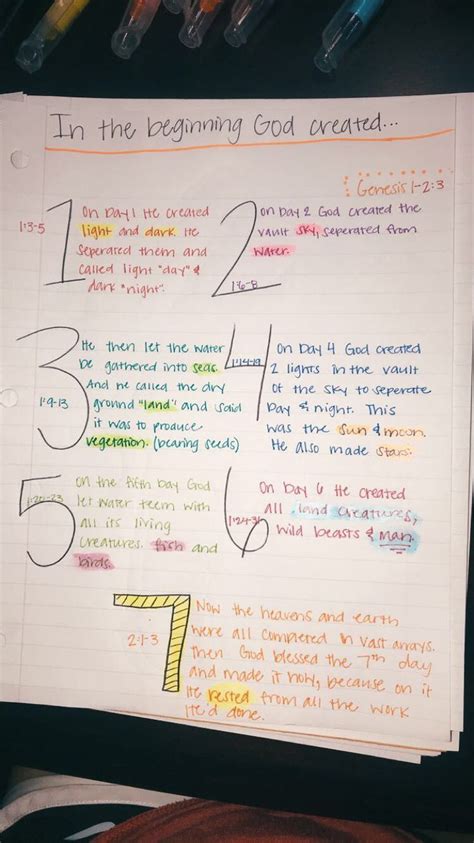 In the beginning God created...
Genesis 1-2:3
1
1:3-5
on Day 1 He created
light and dark. He
seperated them and
called light "day" &
dark "night".
2
on Day 2 God created the
vault sky, seperated from
water.
1:6-8
3
1:9-13
He then let the water
be gathered into seas.
And he called the dry
ground "land" and said
it was to produce
vegetation. (bearing seeds)
4
1:14-19
On Day 4 God created
2 lights in the vault
of the sky to seperate
Day & night. This
was the sun & moon.
He also made stars.
5
1:20-23
on the fifth Day God
let water teem with
all its living
creatures. fish and
birds.
6
1:24-31
On Day 6 He created
all land creatures,
wild beasts & man.
7
2:1-3
Now the heavens and earth
were all completed in vast arrays.
Then God blessed the 7th day
and made it holy, because on it
He rested from all the work
He'd done.